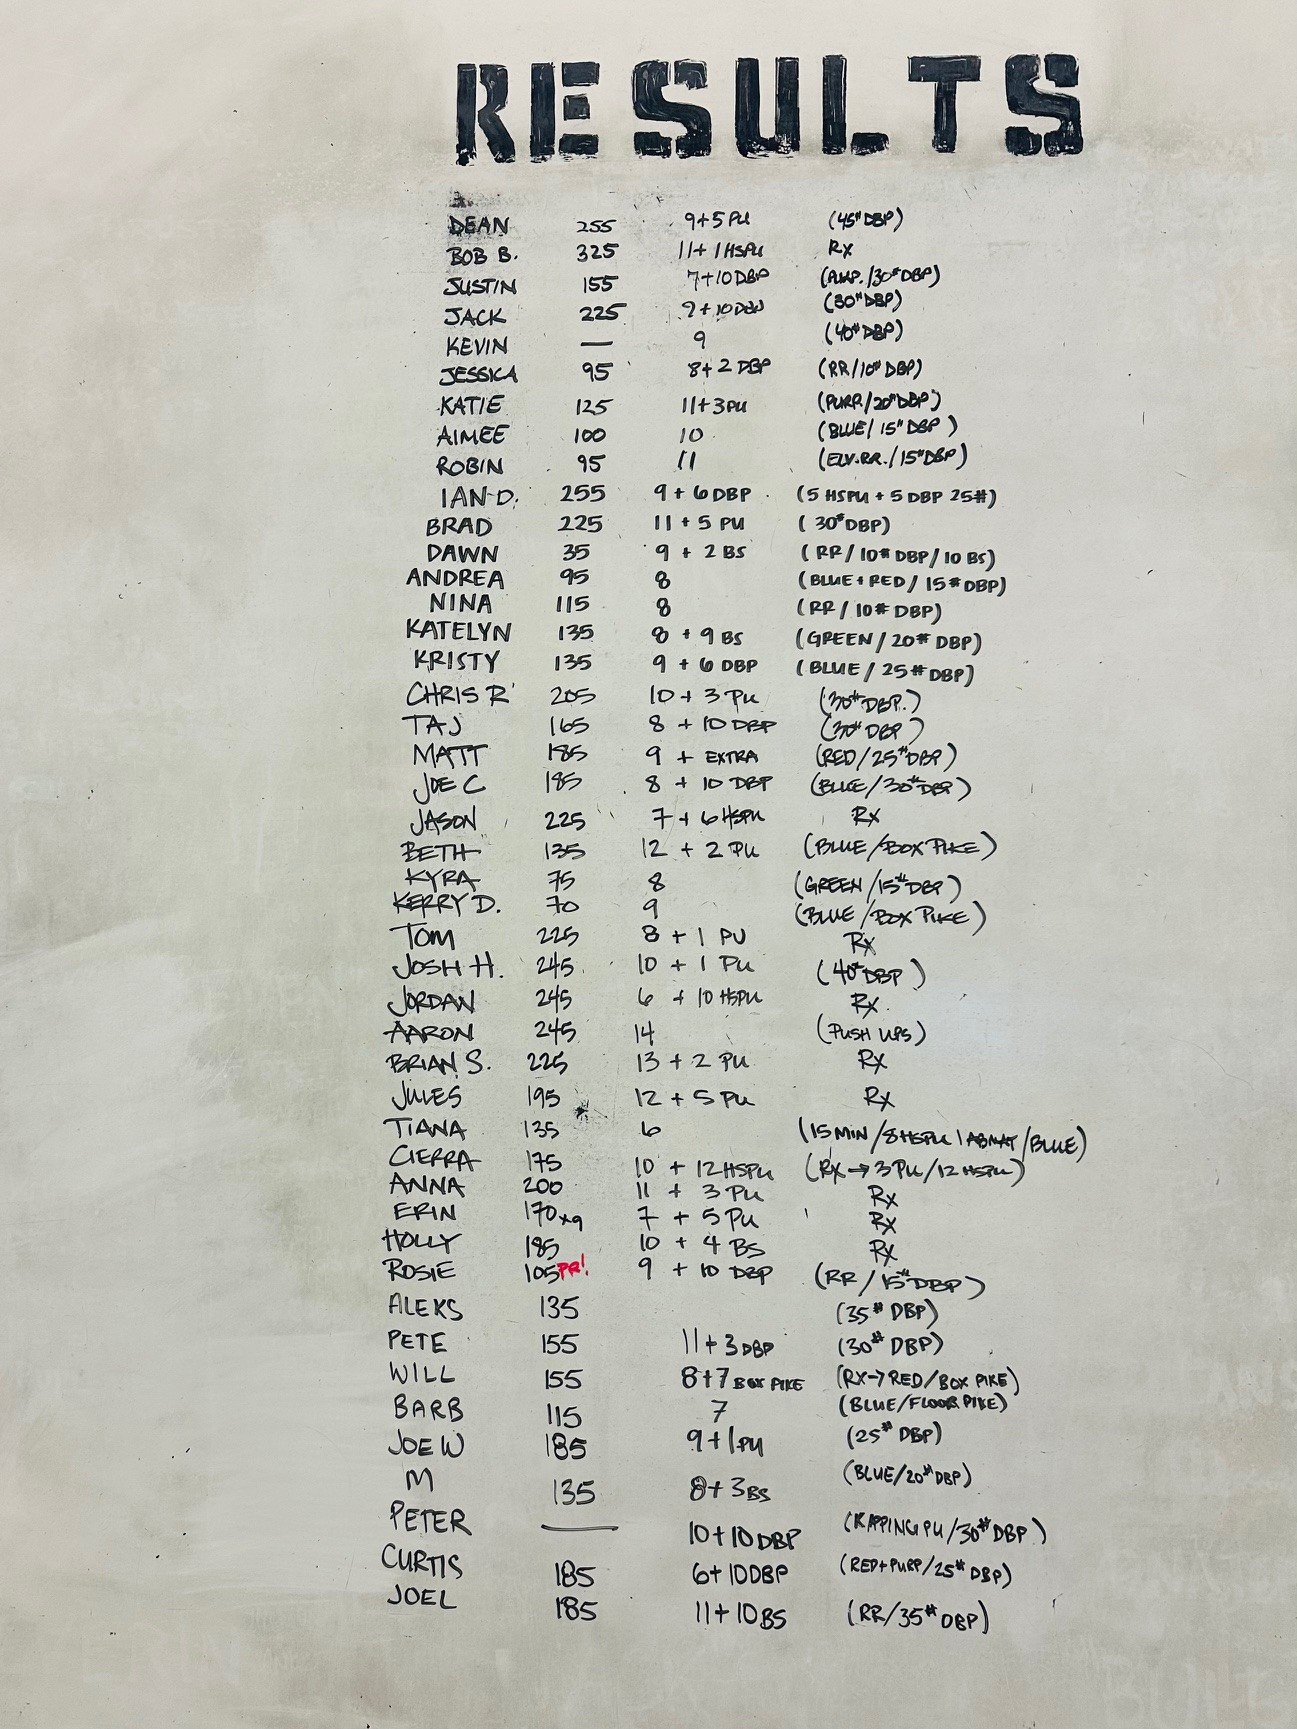 RESULTS
DEAN 255 9+5 PU (45# DBP)
BOB B. 325 11+1 HSPU Rx
JUSTIN 155 7+10 DBP (PURP./30# DBP)
JACK 225 9+10 DBP (30# DBP)
KEVIN — 9 (40# DBP)
JESSICA 95 8+2 DBP (RR/10# DBP)
KATIE 125 11+3 PU (PURP/20# DBP)
AIMEE 100 10 (BLUE/15# DBP)
ROBIN 95 11 (ELV.RR./15# DBP)
IAN D. 255 9 + 6 DBP (5 HSPU + 5 DBP 25#)
BRAD 225 11 + 5 PU (30# DBP)
DAWN 35 9 + 2 BS (RR/10# DBP/10 BS)
ANDREA 95 8 (BLUE + RED/15# DBP)
NINA 115 8 (RR/10# DBP)
KATELYN 135 8 + 9 BS (GREEN/20# DBP)
KRISTY 135 9 + 6 DBP (BLUE/25# DBP)
CHRIS R 205 10 + 3 PU (30# DBP.)
TAJ 165 8 + 10 DBP (30# DBP)
MATT 185 9 + EXTRA (RED/25# DBP)
JOE C 185 8 + 10 DBP (BLUE/30# DBP)
JASON 225 7 + 6 HSPU Rx
BETH 135 12 + 2 PU (BLUE/BOX PIKE)
KYRA 75 8 (GREEN/15# DBP)
KERRY D. 70 9 (BLUE/BOX PIKE)
TOM 225 8 + 1 PU Rx
JOSH H. 245 10 + 1 PU (40# DBP)
JORDAN 245 6 + 10 HSPU Rx
AARON 245 14 (PUSH UPS)
BRIAN S. 225 13 + 2 PU Rx
JULES 195 12 + 5 PU Rx
TIANA 135 6 (15 MIN/8 HSPU 1 ABMAT/BLUE)
CIERRA 175 10 + 12 HSPU (RX → 3 PU/12 HSPU)
ANNA 200 11 + 3 PU Rx
ERIN 170 x9 7 + 5 PU Rx
HOLLY 185 10 + 4 BS Rx
ROSIE 105 PR! 9 + 10 DBP (RR/15# DBP)
ALEKS 135 (35# DBP)
PETE 155 11+3 DBP (30# DBP)
WILL 155 8+7 BOX PIKE (RX→RED/BOX PIKE)
BARB 115 7 (BLUE/FLOOR PIKE)
JOE W 185 9+1 PU (25# DBP)
M 135 8+3 BS (BLUE/20# DBP)
PETER — 10+10 DBP (KIPPING PU/30# DBP)
CURTIS 185 6+10 DBP (RED+PURP/25# DBP)
JOEL 185 11+10 BS (RR/35# DBP)